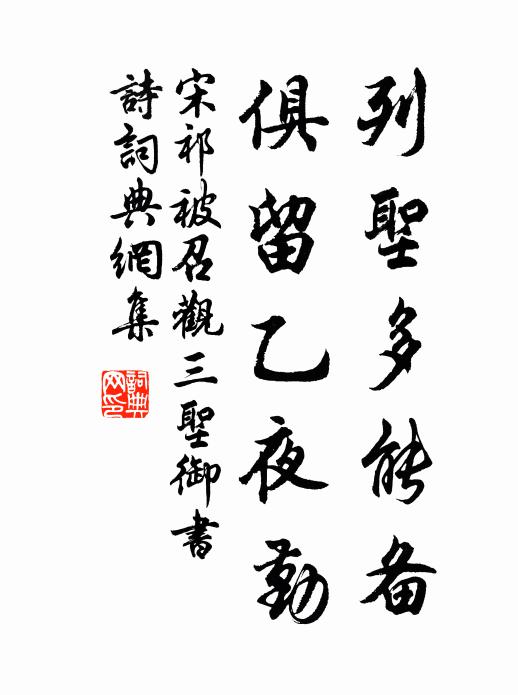 列聖多能备
俱留乙夜勤
宋祁被召觀三聖御書
詩詞典網集
詞典网印